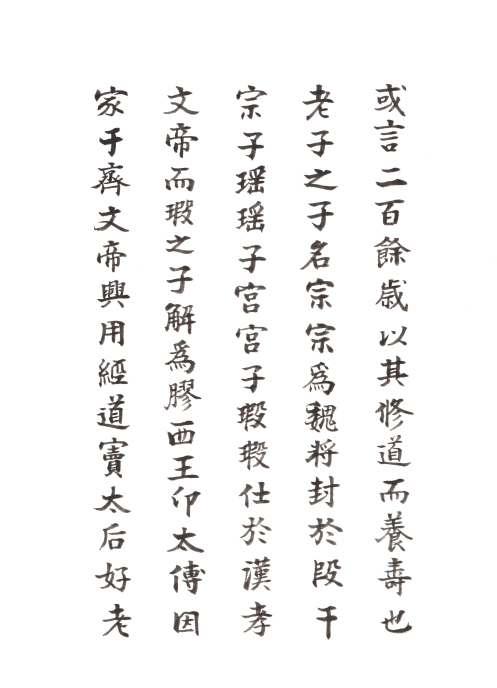 或言二百餘歲以其修道而養壽也
老子之子名宗宗爲魏将封於段干
宗子瑶瑶子宫宫子瑕瑕仕於漢孝
文帝而瑕之子解爲膠西王卬太傅因
家于齊文帝興用經道竇太后好老